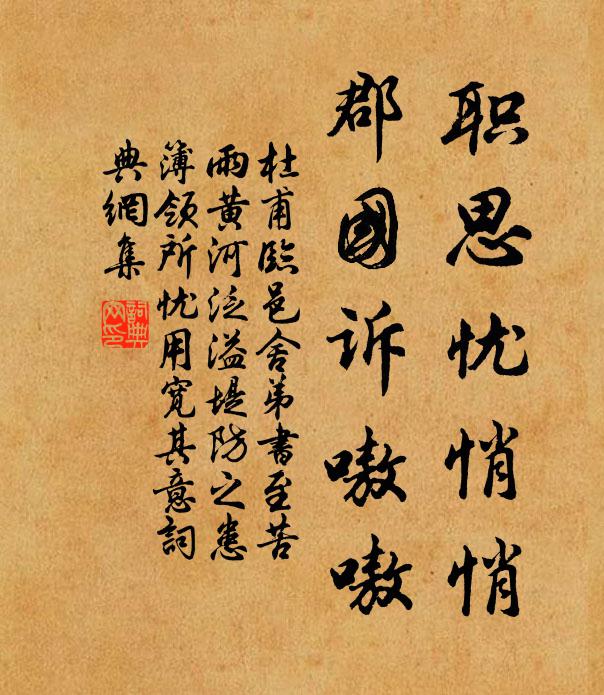 职思忧悄悄
郡國诉嗷嗷
杜甫臨邑舍弟書至苦
雨黄河泛溢堤防之患
簿领所忧用寬其意詞
典網集
詞典
网印